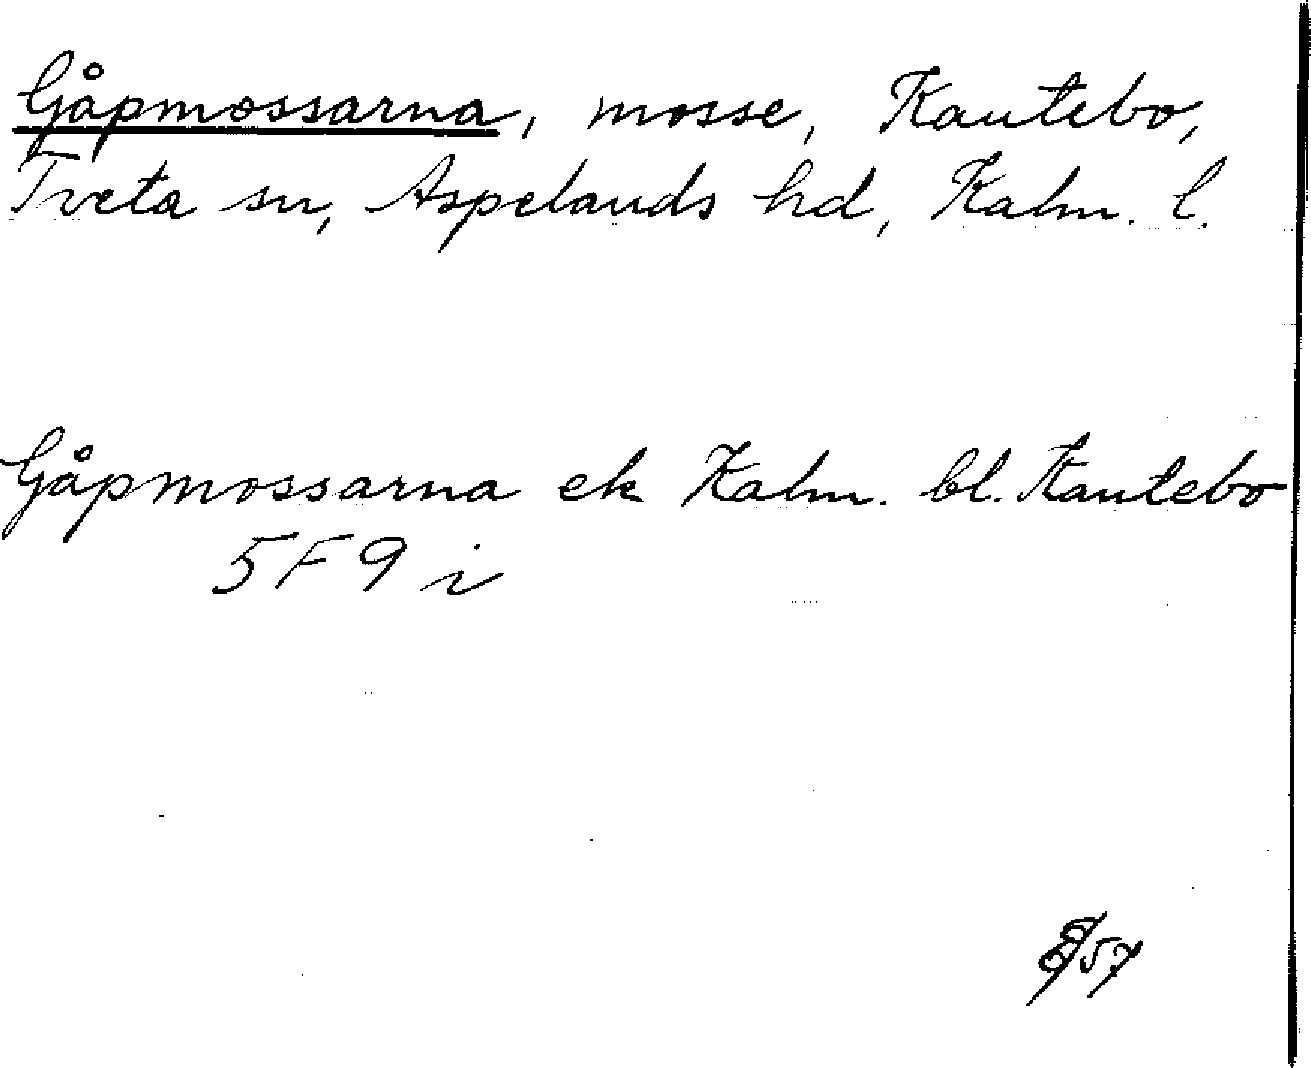 Gåpmossarna, mosse, Kantebo,
Tveta sn, Aspelands hd, Kalm. l.
Gåpmossarna ek Kalm. bl. Kantebo
5F 9 i